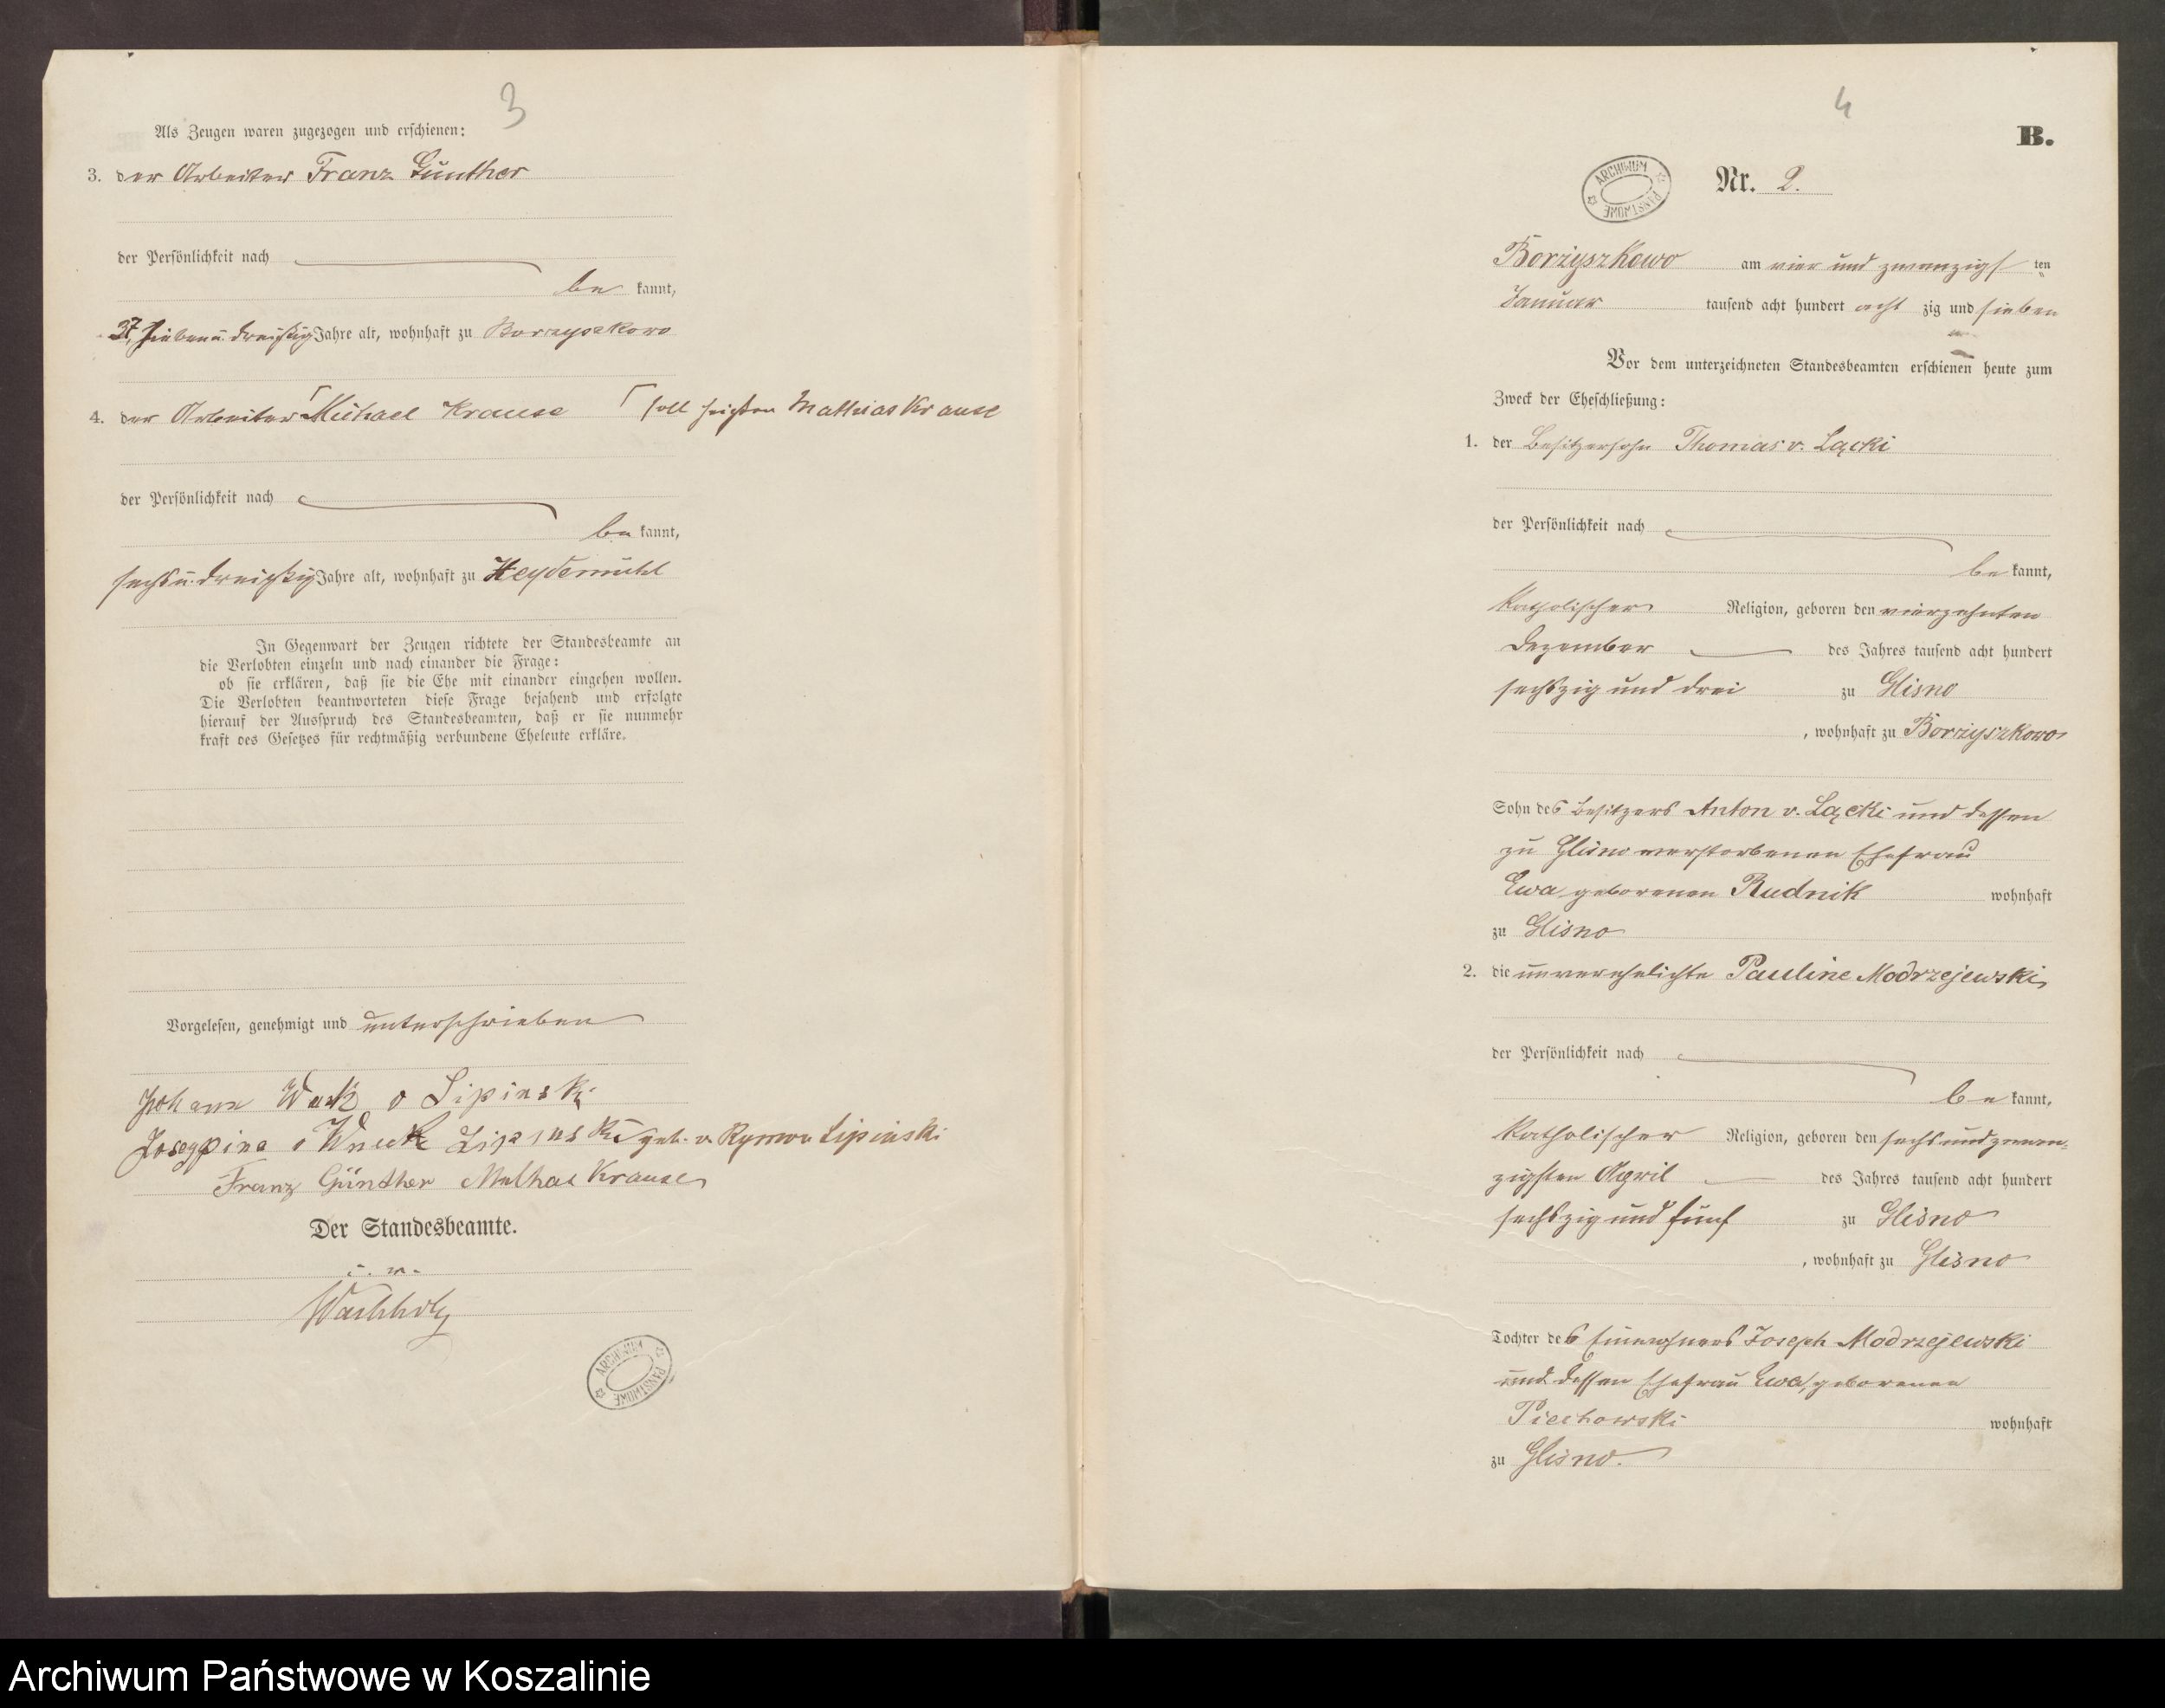 3
Als Zeugen waren zugezogen und erschienen:
3. der Arbeiter Franz Günther
der Persönlichkeit nach
be kannt,
37, sieben u. dreißig Jahre alt, wohnhaft zu Borzyszkowo
4. der Arbeiter ⌈Michael Krause ⌈ soll heißen Mathias Krause
der Persönlichkeit nach
be kannt,
sechs u. dreißig Jahre alt, wohnhaft zu Heydemühl
In Gegenwart der Zeugen richtete der Standesbeamte an
die Verlobten einzeln und nach einander die Frage:
ob sie erklären, daß sie die Ehe mit einander eingehen wollen.
Die Verlobten beantworteten diese Frage bejahend und erfolgte
hierauf der Ausspruch des Standesbeamten, daß er sie nunmehr
kraft des Gesetzes für rechtmäßig verbundene Eheleute erkläre.
Vorgelesen, genehmigt und unterschrieben
Johann Wnuk v Lipinski
Josepina v Wnuck Lipinski geb. v. Rymon Lipinski
Franz Günther Mathas Krause
Der Standesbeamte.
Wachholz
ARCHIWUM PAŃSTWOWE
4
B.
ARCHIWUM PAŃSTWOWE
Nr. 2.
Borzyszkowo am vier und zwanzigs ten
Januar tausend acht hundert acht zig und sieben
Vor dem unterzeichneten Standesbeamten erschienen heute zum
Zweck der Eheschließung:
1. der Besitzersohn Thomas v. Lącki
der Persönlichkeit nach
be kannt,
katholischer Religion, geboren den vierzehnten
Dezember des Jahres tausend acht hundert
sechszig und drei zu Glisno
, wohnhaft zu Borzyszkowo
Sohn des Besitzers Anton v. Lącki und dessen
zu Glisno verstorbenen Ehefrau
Ewa geborenen Rudnik wohnhaft
zu Glisno
2. die unverehelichte Pauline Modrzejewski,
der Persönlichkeit nach
be kannt,
katholischer Religion, geboren den sechs und zwan-
zigsten April des Jahres tausend acht hundert
sechszig und fünf zu Glisno
, wohnhaft zu Glisno
Tochter des Einwohners Joseph Modrzejewski
und dessen Ehefrau Ewa, geborenen
Piechowski wohnhaft
zu Glisno.
Archiwum Państwowe w Koszalinie